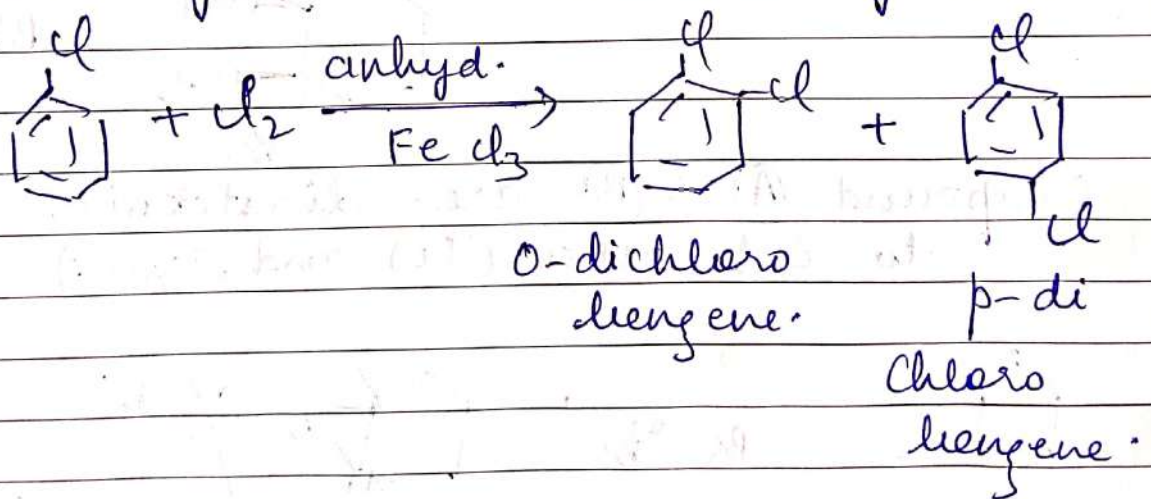 Cl Cl Cl
+ Cl2 anhyd. Cl +
Fe Cl3
Cl
O-dichloro
benzene.
p-di
Chloro
benzene.